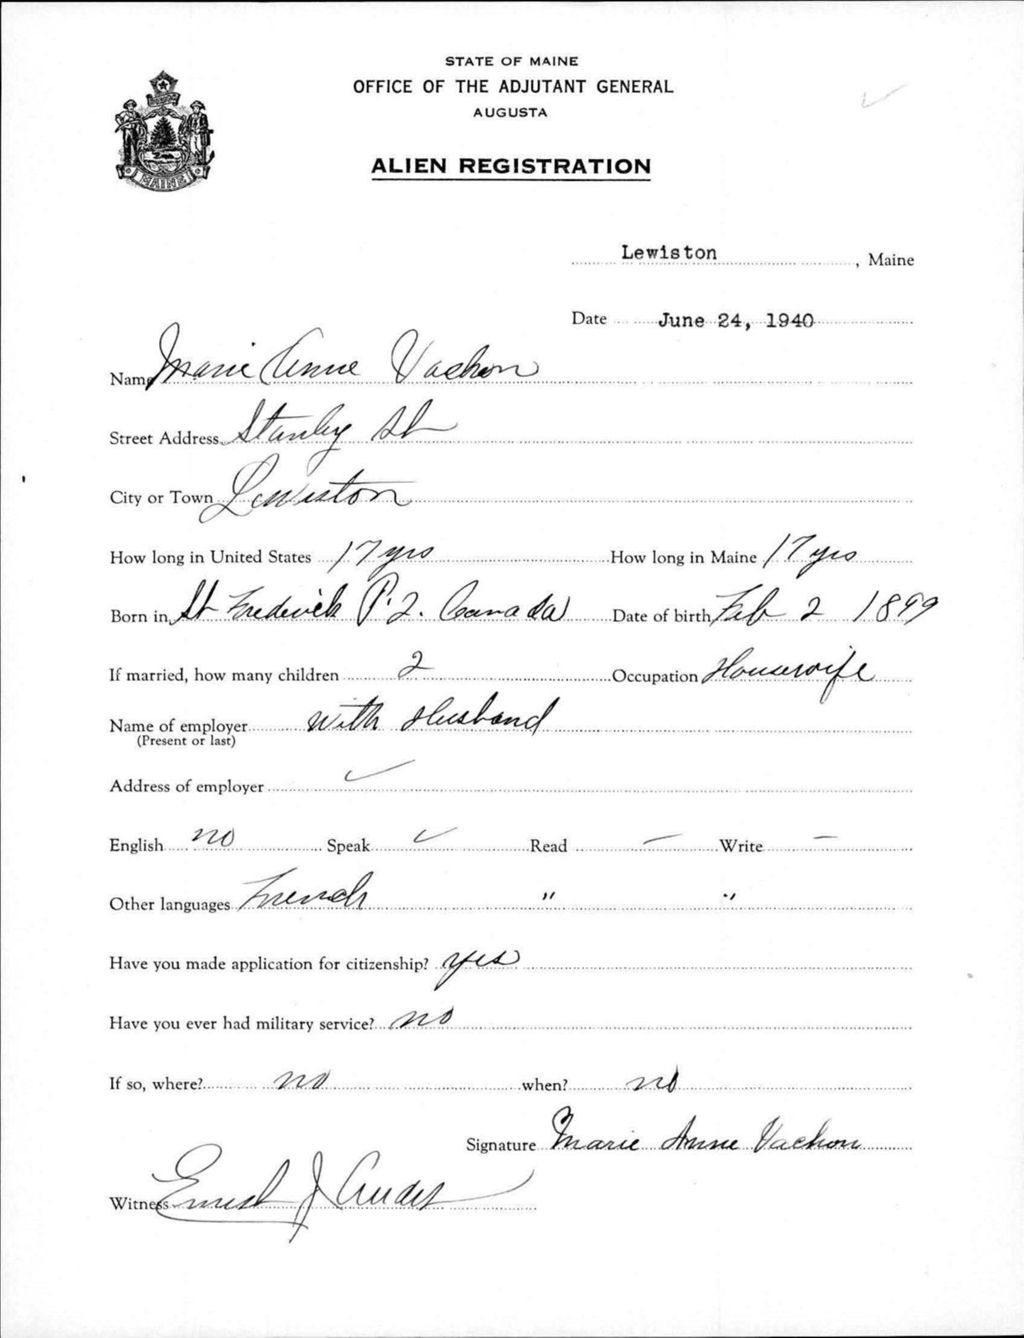 STATE OF MAINE
OFFICE OF THE ADJUTANT GENERAL
AUGUSTA
MAINE
ALIEN REGISTRATION
Lewiston, Maine
Date June 24, 1940
Name Marie Anne Vachon
Street Address Stanley St
City or Town Lewiston
How long in United States 17 yrs How long in Maine 17 yrs
Born in St Frederick P.Q. Canada Date of birth Feb 2 1899
If married, how many children 2 Occupation Housewife
Name of employer with Husband
(Present or last)
Address of employer ✓
English no Speak ✓ Read — Write —
Other languages French " "
Have you made application for citizenship? yes
Have you ever had military service? no
If so, where? no when? no
Signature Marie Anne Vachon
Witness Ernest J